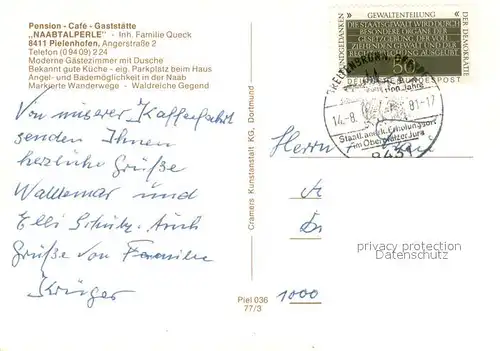 Pension - Café - Gaststätte
„NAABTALPERLE" · Inh. Familie Queck
8411 Pielenhofen, Angerstraße 2
Telefon (09409) 224
Moderne Gästezimmer mit Dusche
Bekannt gute Küche - eig. Parkplatz beim Haus
Angel- und Bademöglichkeit in der Naab
Markierte Wanderwege - Waldreiche Gegend
Von unserer Kaffeefahrt
senden Ihnen
herzliche Grüße
Waldemar und
Elli Schulz. Auch
Grüße von Familie
Krüger
Cramers Kunstanstalt KG, Dortmund
Piel 036
77/3
GRUNDGEDANKEN
GEWALTENTEILUNG
DER DEMOKRATIE
DIE STAATSGEWALT WIRD DURCH
BESONDERE ORGANE DER
GESETZGEBUNG, DER VOLL-
AUSGEÜBT
DEUTSCHE BUNDESPOST
14.-8. 81-17
Staatl. anerk. Erholungsort
im Oberpfälzer Jura
Herrn
1000
privacy protection
Datenschutz